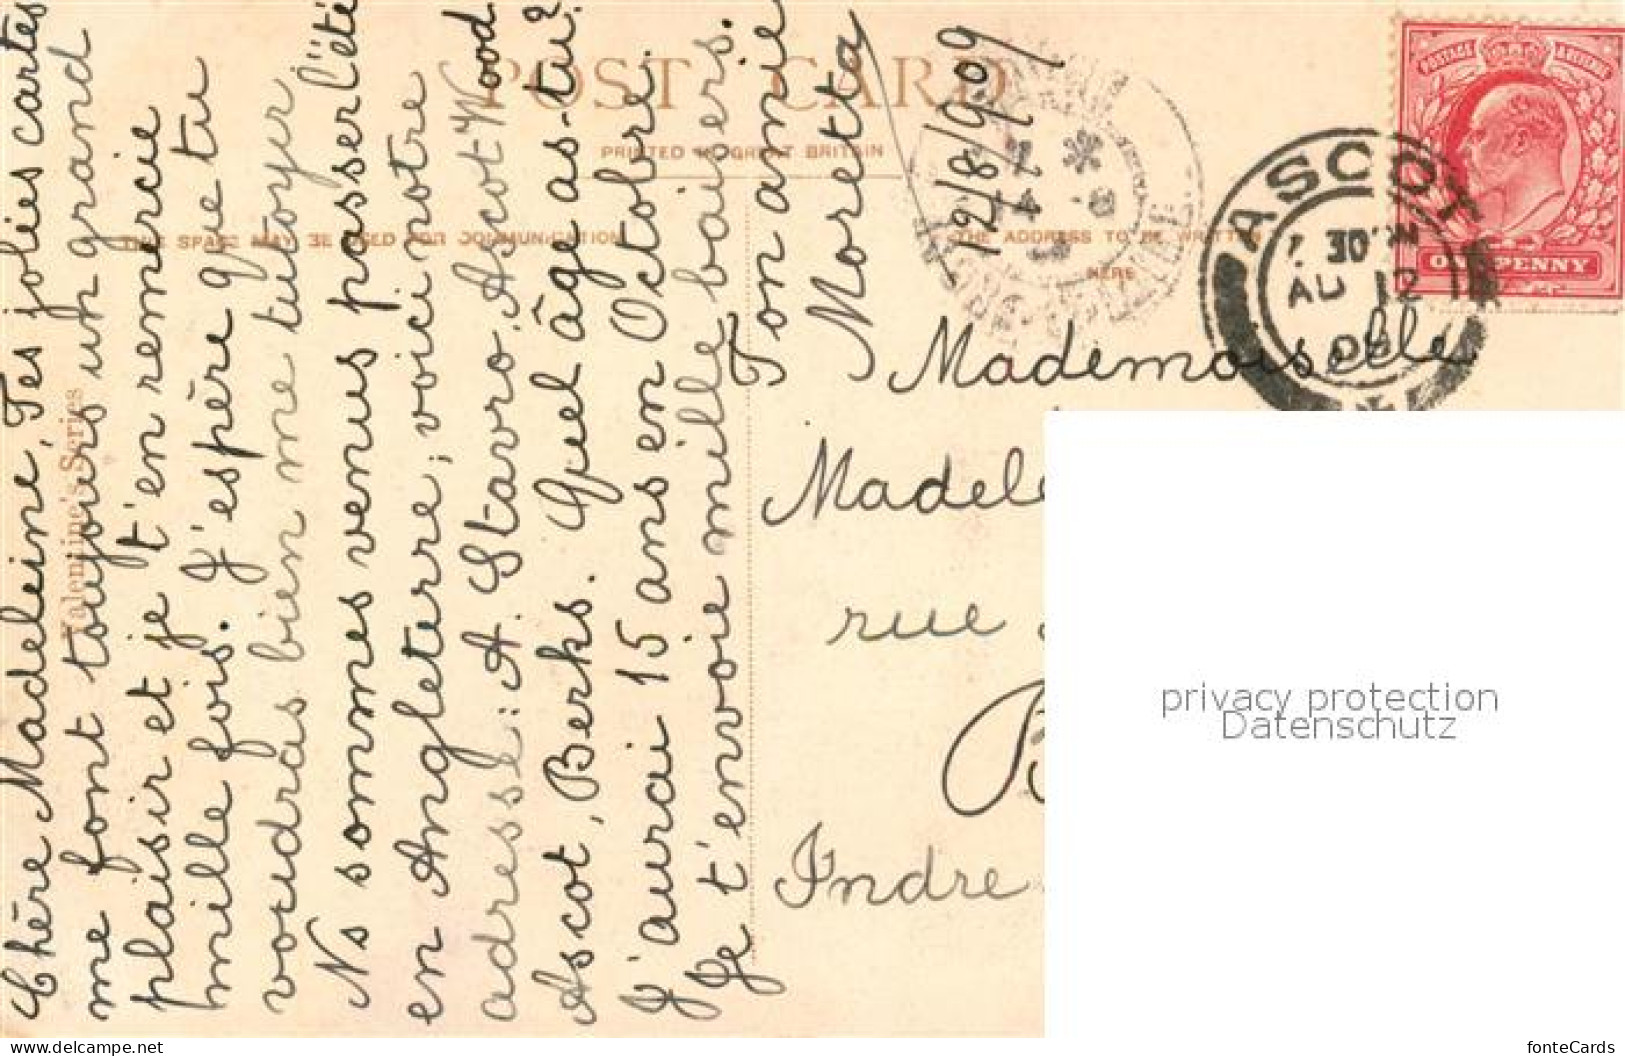 Chère Madeleine, Tes jolies cartes
me font toujours un grand
plaisir et je t'en remercie
mille fois. J'espère que tu
voudras bien me tutoyer
Ns sommes venus passer l'été
en Angleterre; voici notre
adresse: A. Stavro. Ascot Wood
Ascot, Berks. Quel âge as-tu?
J'aurai 15 ans en Octobre.
Je t'envoie mille baisers.
Ton amie
Moretta
12/8/909
POST CARD
PRINTED IN GREAT BRITAIN
THIS SPACE MAY BE USED FOR COMMUNICATION
THE ADDRESS TO BE WRITTEN
HERE
Valentine's Series
POSTAGE REVENUE
ONE PENNY
ASCOT
AU 12
09
Mademoiselle
Madele
rue
Indre
privacy protection
Datenschutz
www.delcampe.net
fonteCards